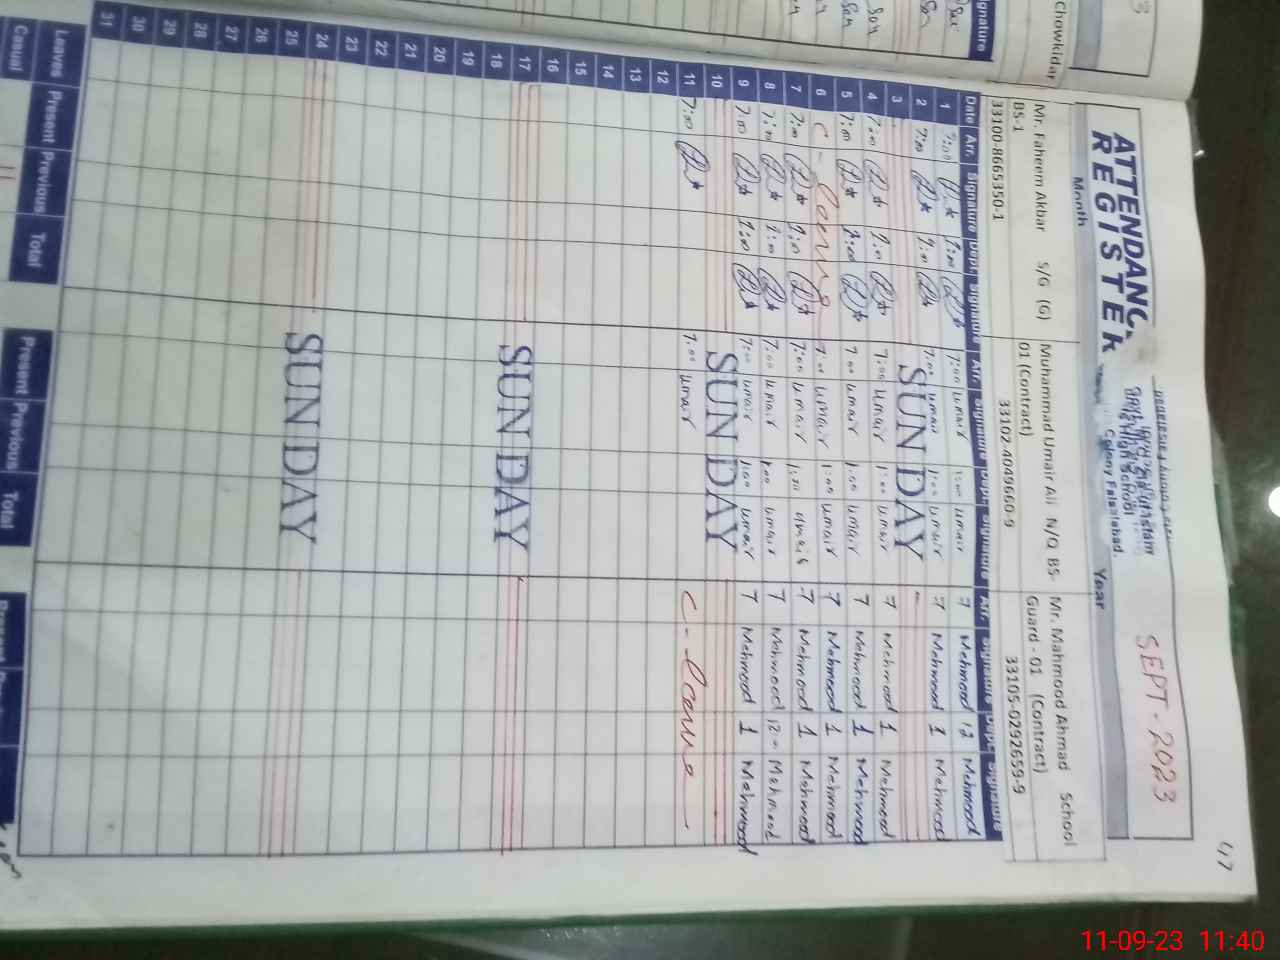 47
SEPT - 2023
ATTENDANC
REGISTER
High School
Colony Faisalabad.
Month
Year
Chowkidar
Mr. Faheem Akbar S/G (G)
BS-1
33100-8665350-1
Muhammad Umair Ali N/Q BS-
01 (Contract)
33102-4049660-9
Mr. Mahmood Ahmad School
Guard - 01 (Contract)
33105-0292659-9
Signature
Date Arr. Signature Dept. Signature Arr. Signature Dept. Signature Arr. Signature Dept. Signature
1 7:00 1:00 7:00 umair 1:00 umair 7 Mehmood 12 Mehmood
2 7:00 1:00 7:00 umair 1:00 umair 7 Mehmood 1 Mehmood
3 SUNDAY
4 7:00 1:00 7:00 umair 1:00 umair 7 Mehmood 1 Mehmood
5 7:00 1:00 7:00 umair 1:00 umair 7 Mehmood 1 Mehmood
6 C - Leave 7:00 umair 1:00 umair 7 Mehmood 1 Mehmood
7 7:00 1:00 7:00 umair 1:00 umair 7 Mehmood 1 Mehmood
8 7:00 1:00 7:00 umair 1:00 umair 7 Mehmood 12 Mehmood
9 7:00 1:00 7:00 umair 1:00 umair 7 Mehmood 1 Mehmood
10 SUNDAY
11 7:00 7:00 umair C - Leave
12
13
14
15
16
17 SUNDAY
18
19
20
21
22
23
24 SUNDAY
25
26
27
28
29
30
31
Leaves Present Previous Total Present Previous Total Present
Casual
11-09-23 11:40